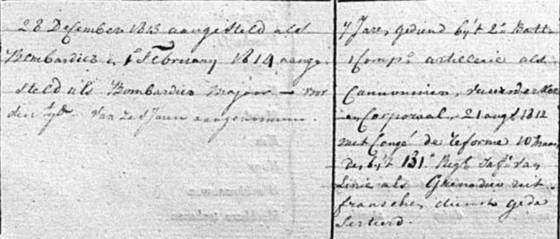 28 December 1813 aangesteld als
Bombardier, 1e February 1814 aange-
steld als Bombardier Majoor – voor
den tijd van zes Jaren aangenomen.
7 Jaren gediend bij 't 2e Batt.
1 Comp. artillerie als
Cannonnier,
en Corporaal, 21 augt 1812
met Congé de reforme 10 maan-
den bij 't 131e Regt Inf. van
Linie als Grenadier uit
franschen dienst gede-
serteerd.